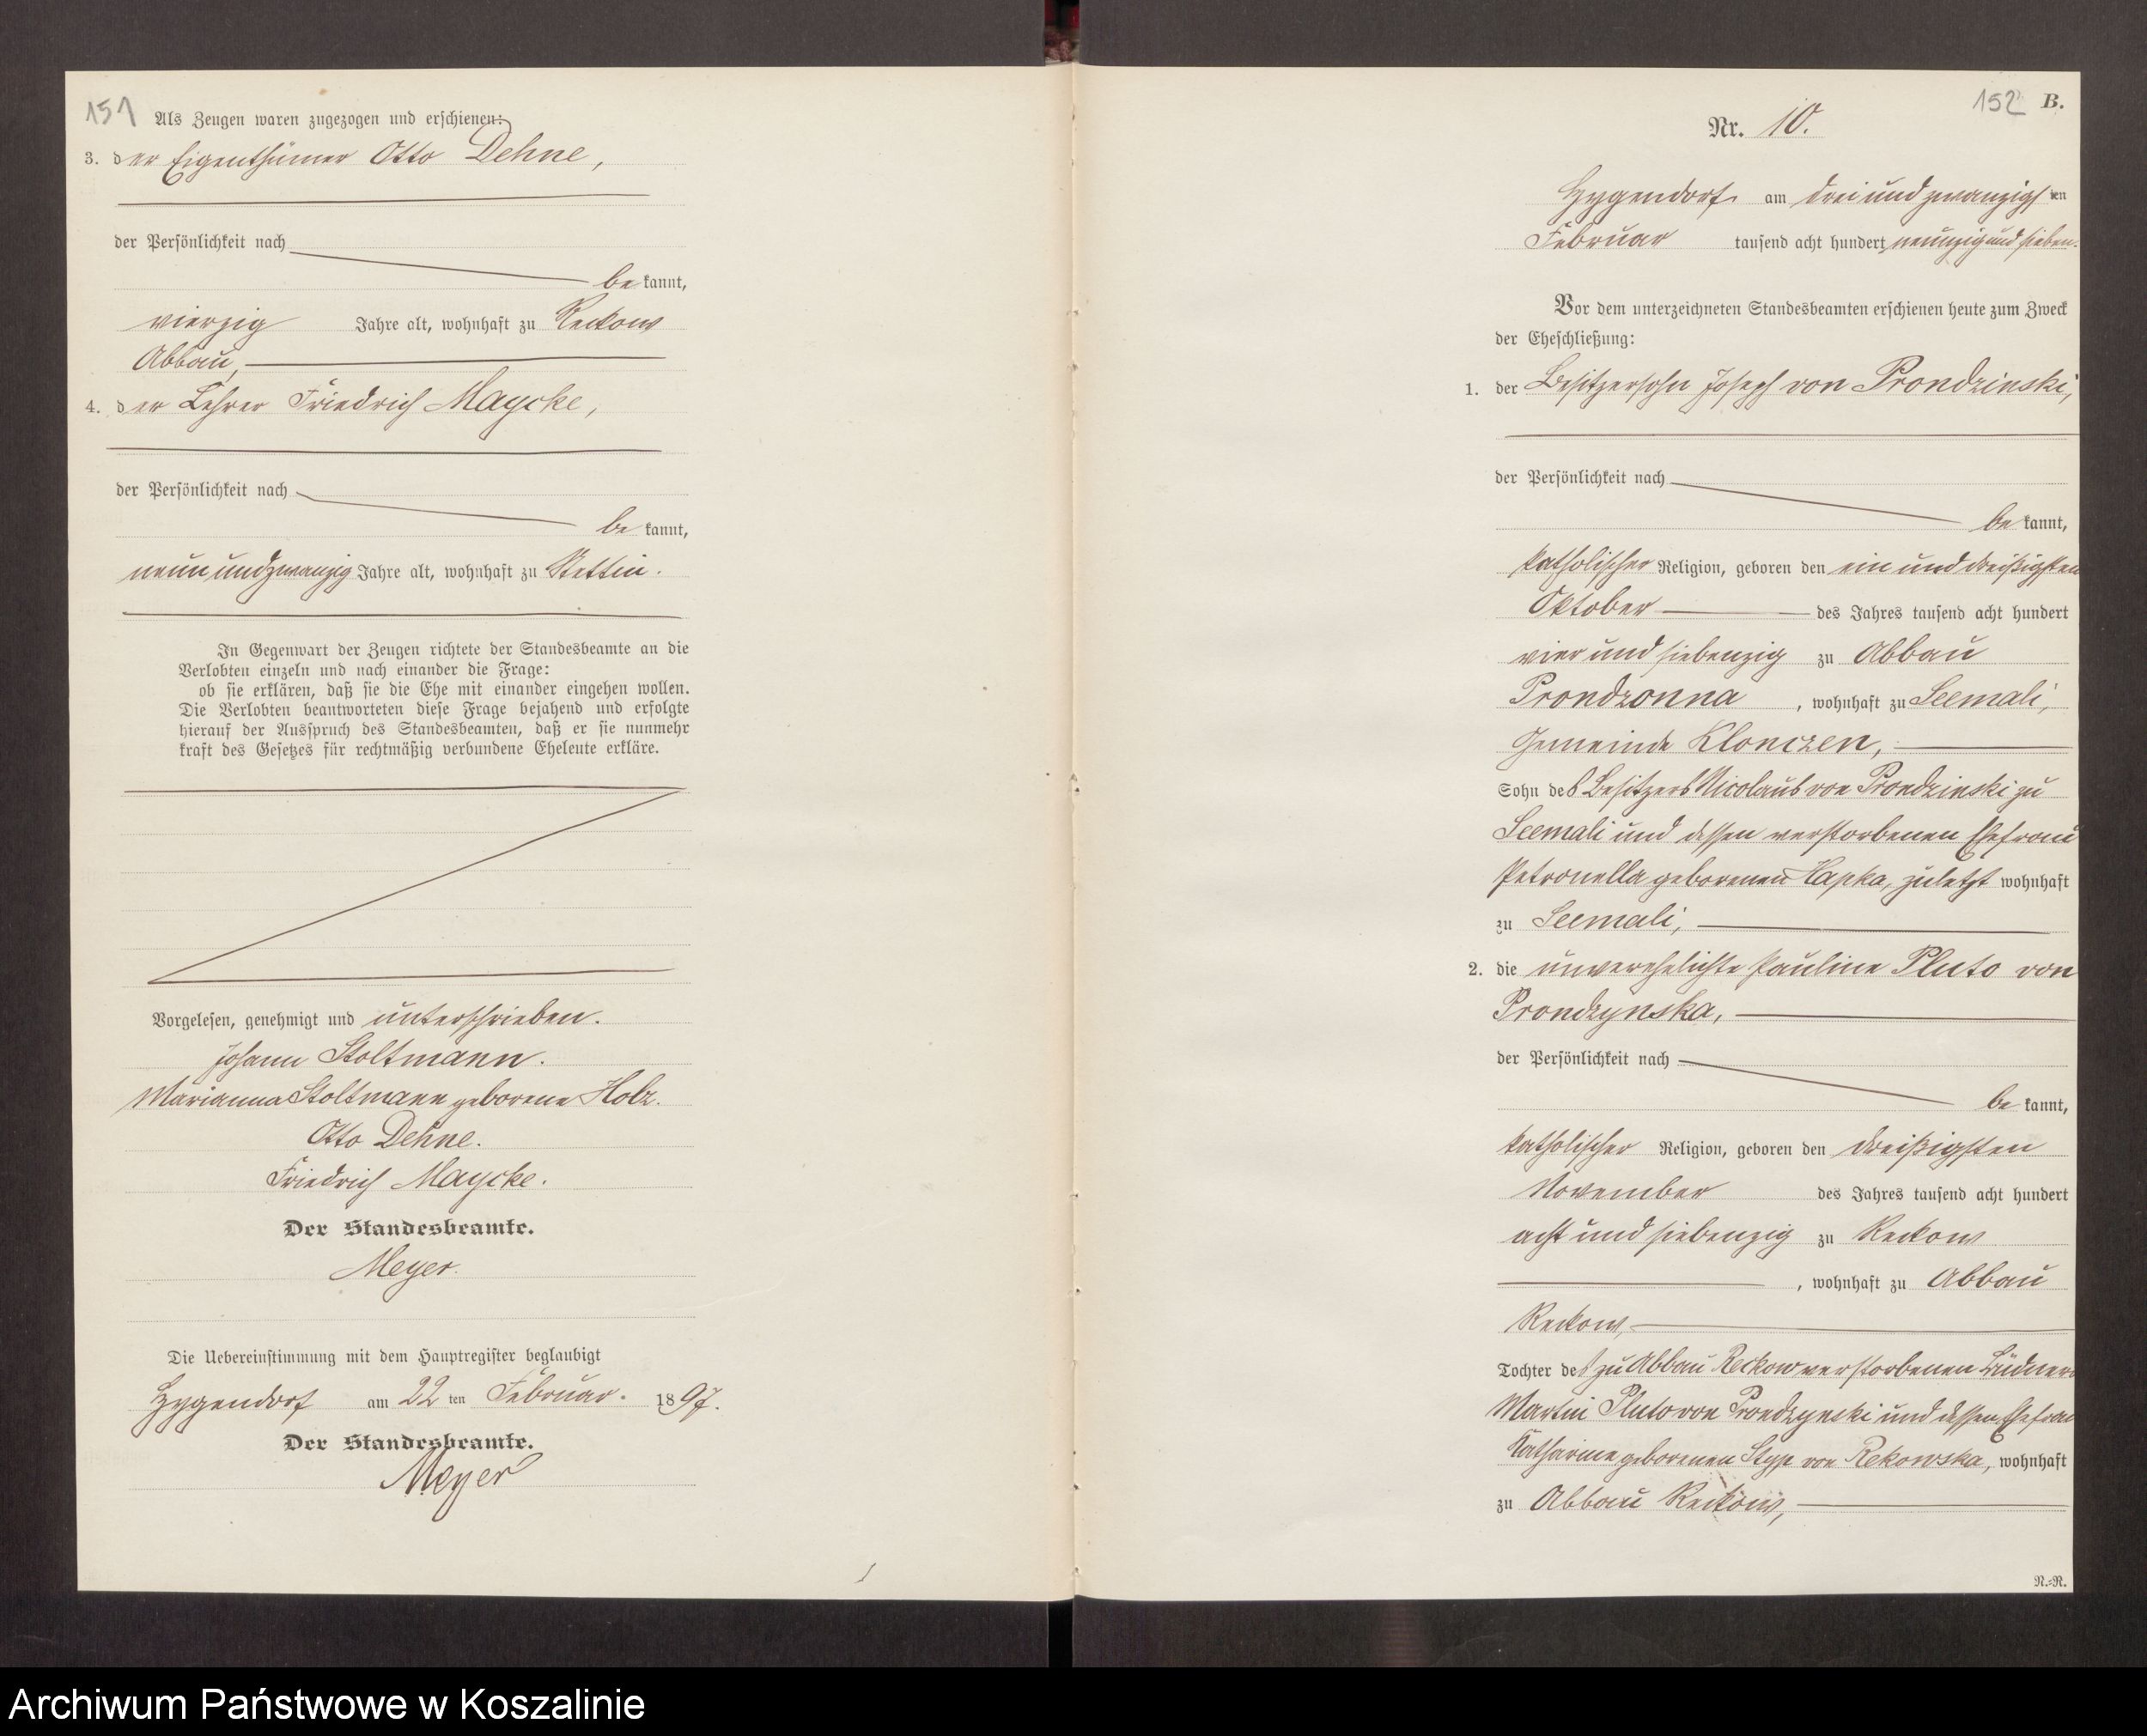 151
Als Zeugen waren zugezogen und erschienen:
3. der Eigenthümer Otto Dehne,
der Persönlichkeit nach
bekannt,
vierzig Jahre alt, wohnhaft zu Reckow
Abbau,
4. der Lehrer Friedrich Maycke,
der Persönlichkeit nach
bekannt,
neunundzwanzig Jahre alt, wohnhaft zu Stettin.
In Gegenwart der Zeugen richtete der Standesbeamte an die
Verlobten einzeln und nach einander die Frage:
ob sie erklären, daß sie die Ehe mit einander eingehen wollen.
Die Verlobten beantworteten diese Frage bejahend und erfolgte
hierauf der Ausspruch des Standesbeamten, daß er sie nunmehr
kraft des Gesetzes für rechtmäßig verbundene Eheleute erkläre.
Vorgelesen, genehmigt und unterschrieben.
Johann Stoltmann.
Marianna Stoltmann geborene Holz.
Otto Dehne.
Friedrich Maycke.
Der Standesbeamte.
Meyer.
Die Uebereinstimmung mit dem Hauptregister beglaubigt
Hygendorf am 22 ten Februar. 1897.
Der Standesbeamte.
Meyer
152 B.
Nr. 10.
Hygendorf am drei und zwanzigsten
Februar tausend acht hundert neunzig und sieben.
Vor dem unterzeichneten Standesbeamten erschienen heute zum Zweck
der Eheschließung:
1. der Besitzersohn Joseph von Prondzinski,
der Persönlichkeit nach
bekannt,
katholischer Religion, geboren den ein und dreißigsten
Oktober des Jahres tausend acht hundert
vier und siebenzig zu Abbau
Prondzonna, wohnhaft zu Seemali,
Gemeinde Klonczen,
Sohn des Besitzers Nicolaus von Prondzinski zu
Seemali und dessen verstorbenen Ehefrau
Petronella geborenen Hapka, zuletzt wohnhaft
zu Seemali,
2. die unverehelichte Pauline Pluto von
Prondzynska,
der Persönlichkeit nach
bekannt,
katholischer Religion, geboren den dreißigsten
November des Jahres tausend acht hundert
acht und siebenzig zu Reckow
, wohnhaft zu Abbau
Reckow,
Tochter des zu Abbau Reckow verstorbenen Büdners
Martin Pluto von Prondzynski und dessen Ehefrau
Katharine geborenen Styp von Rekowska, wohnhaft
zu Abbau Reckow,
N.=R.
Archiwum Państwowe w Koszalinie